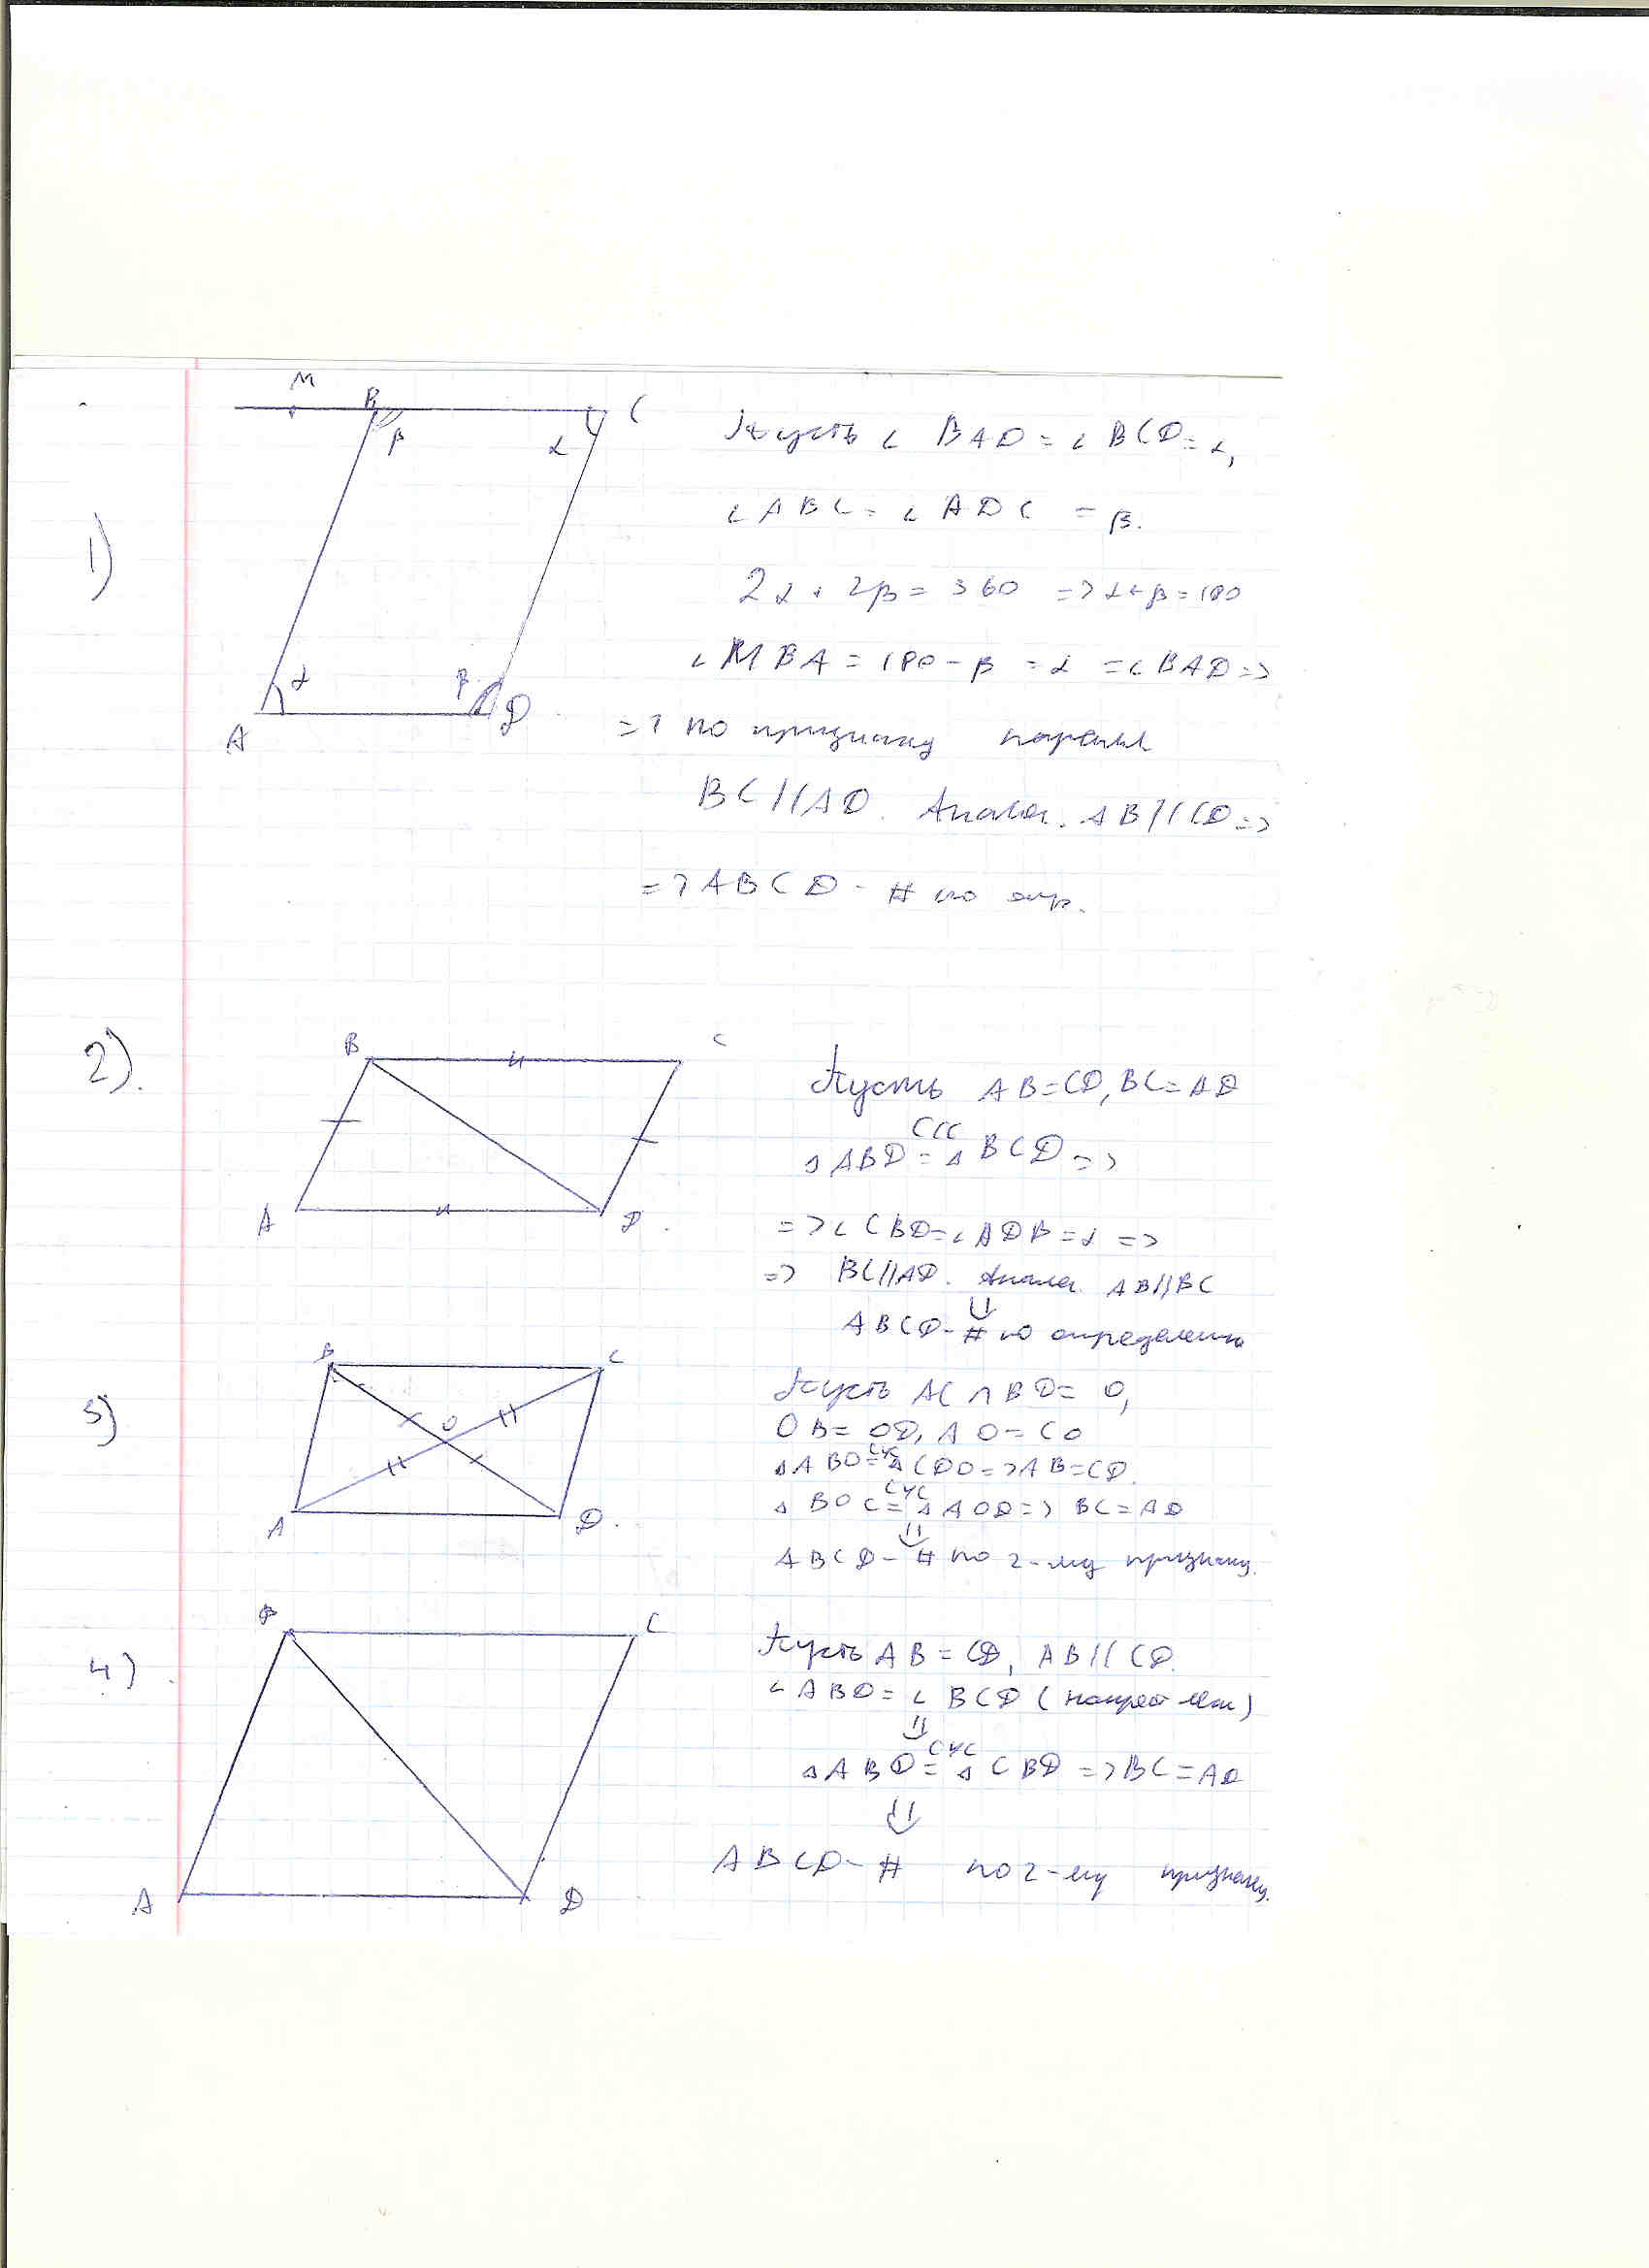 1)
M B C
β α
α β
A D
Пусть ∠ BAD = ∠ BCD = α,
∠ ABC = ∠ ADC = β.
2α + 2β = 360 => α + β = 180
∠ MBA = 180 - β = α = ∠ BAD =>
=> по признаку паралл
BC//AD. Аналог. AB//CD =>
=> ABCD - # по опр.
2).
B C
A D.
Пусть AB = CD, BC = AD
ССС
△ ABD = △ BCD =>
=> ∠ CBD = ∠ ADB = α =>
=> BC//AD. Аналог. AB//BC
⇓
ABCD - # по определению
3)
B C
O
A D.
Пусть AC ∩ BD = O,
OB = OD, AO = CO
СУС
△ ABO = △ CDO => AB = CD.
СУС
△ BOC = △ AOD => BC = AD
⇓
ABCD - # по 2-му признаку.
4)
B C
A D
Пусть AB = CD, AB // CD.
∠ ABD = ∠ BCD (накрест леж)
⇓
СУС
△ ABD = △ CBD => BC = AD
⇓
ABCD - # по 2-му признаку.